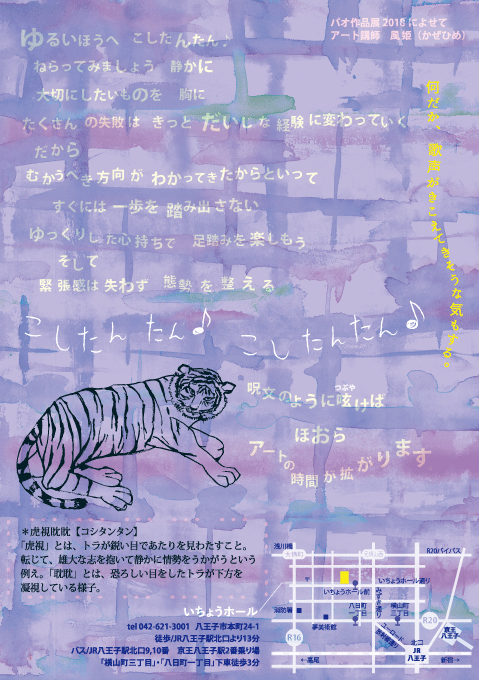 パオ作品展2018によせて
アート講師　風姫（かぜひめ）
ゆるいほうへ　こしたんたん♪
ねらってみましょう　静かに
大切にしたいものを　胸に
たくさん の失敗は きっと だいじな 経験に変わっていく
だから
むかうべき方向が わかってきたからといって
すぐには 一歩を 踏み出さない
ゆっくりした心持ちで　足踏みを楽しもう
そして
緊張感は失わず　態勢を整える
何だか、歌声がきこえてきそうな気もする。
こしたん たん♪　こしたんたんッ♪
呪文のように呟けば
つぶや
ほおら
アートの時間が拡がります
＊虎視眈眈【コシタンタン】
「虎視」とは、トラが鋭い目であたりを見わたすこと。
転じて、雄大な志を抱いて静かに情勢をうかがうという
例え。「眈眈」とは、恐ろしい目をしたトラが下方を
凝視している様子。
いちょうホール
tel 042-621-3001　八王子市本町24-1
徒歩/JR八王子駅北口より13分
バス/JR八王子駅北口9,10番　京王八王子駅2番乗り場
「横山町三丁目」・「八日町一丁目」下車徒歩3分
浅川橋
R20バイパス
いちょうホール通り
いちょうホール前
消防署
八日町
一丁目
横山町
三丁目
夢美術館
みずき通り
ユーロード
R16
R20
京王
八王子
北口
JR
八王子
←高尾
新宿→